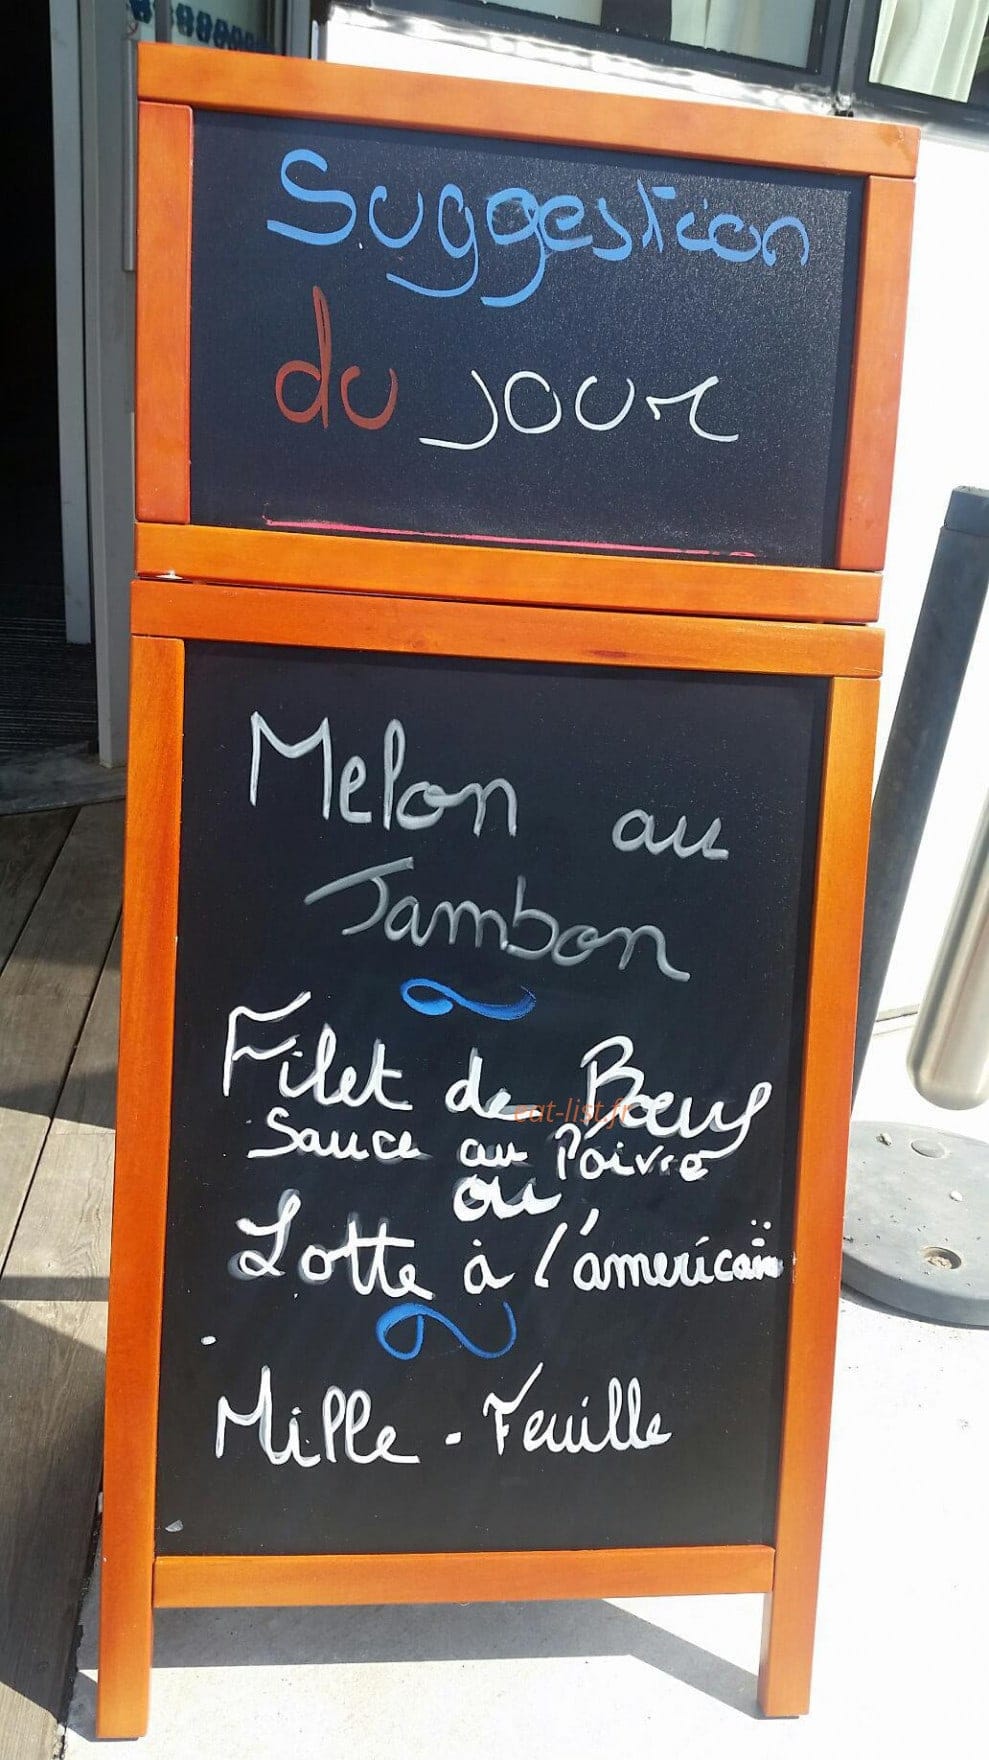 Suggestion
du jour
Melon au
Jambon
Filet de Boeuf
eat-list.fr
Sauce au Poivre
ou
Lotte à l'américain
Mille-Feuille